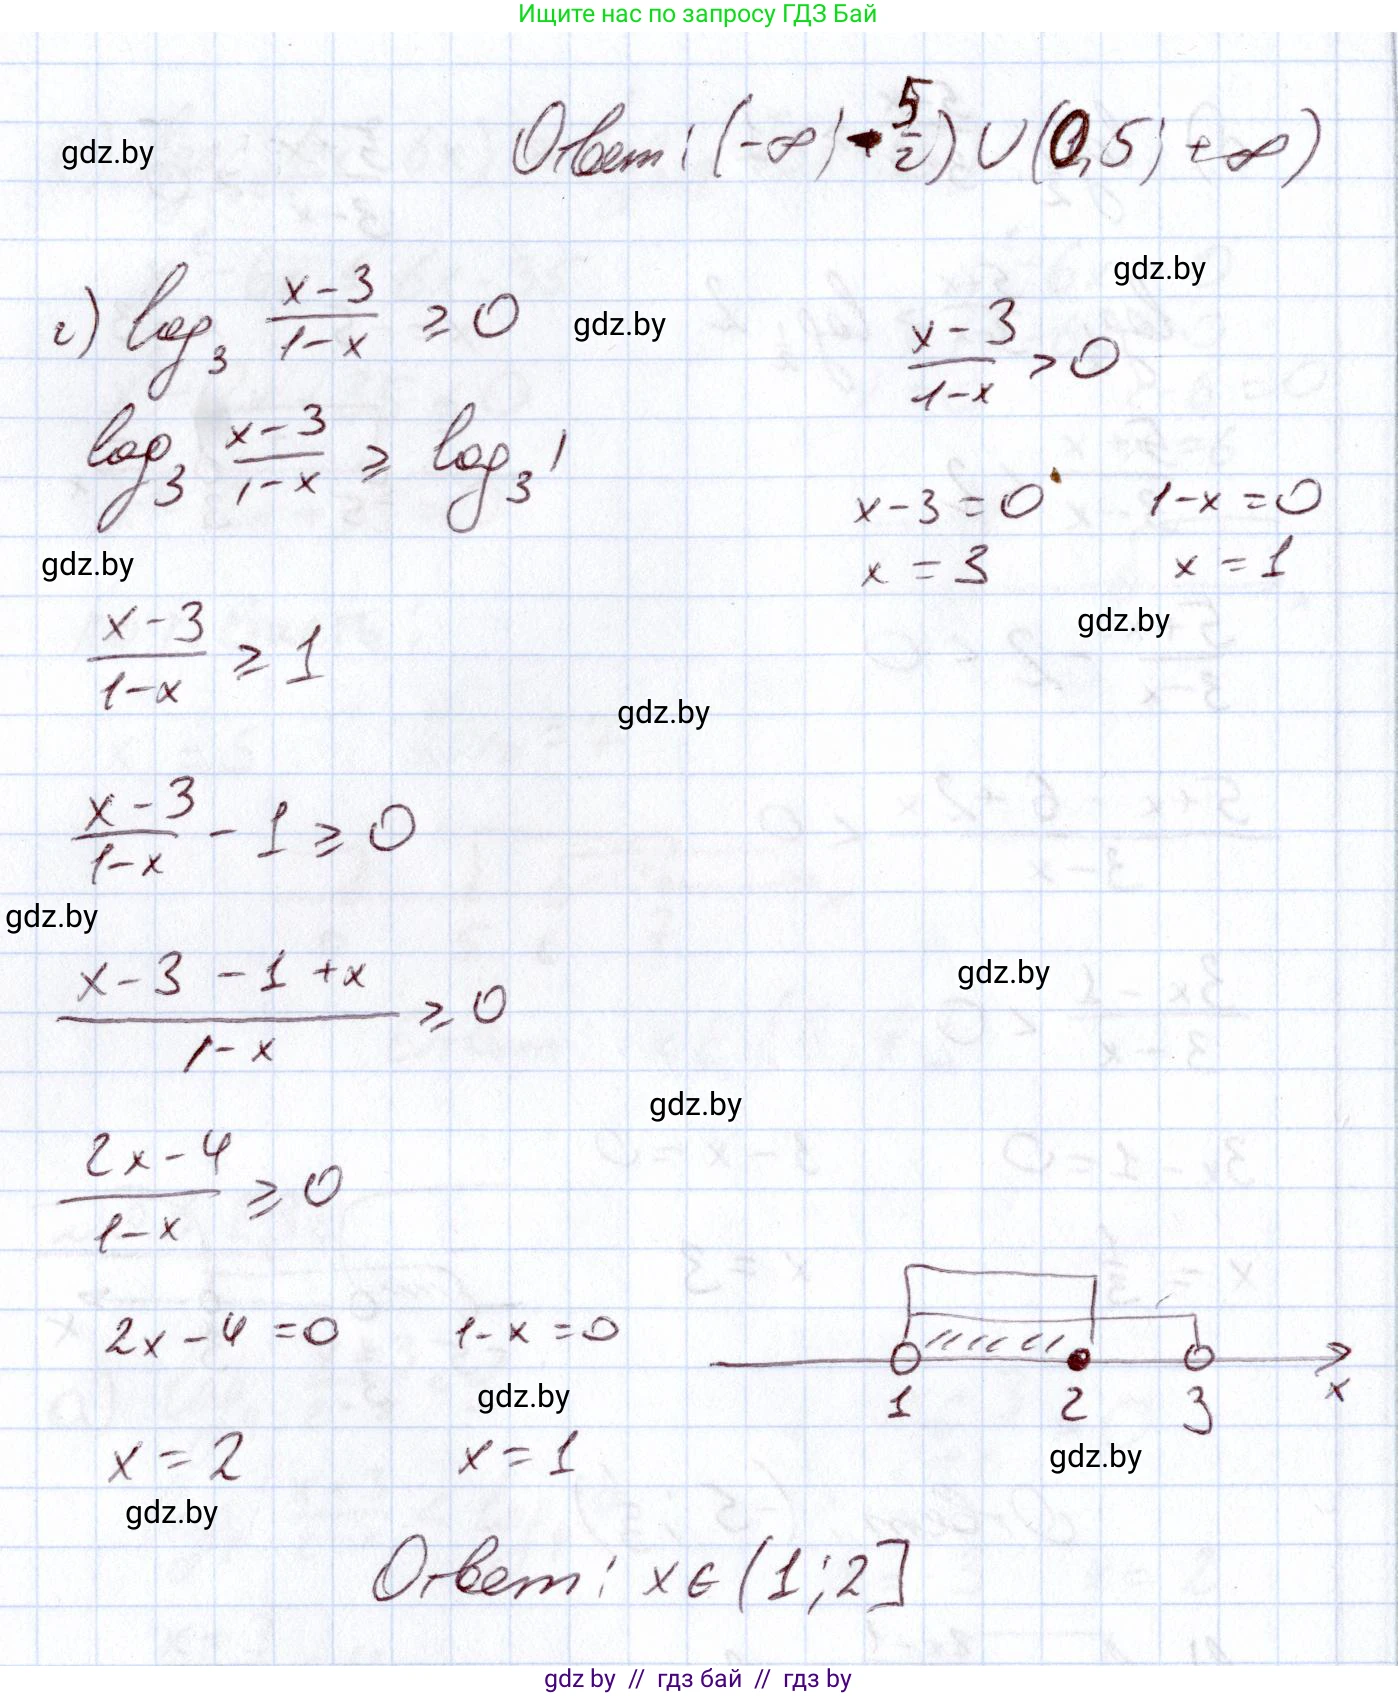 Ищите нас по запросу ГДЗ Бай
Ответ: (-∞; -5/2) ∪ (0,5; +∞)
gdz.by
gdz.by
г) log₃ (x-3)/(1-x) ≥ 0
gdz.by
(x-3)/(1-x) > 0
log₃ (x-3)/(1-x) ≥ log₃ 1
x-3=0 1-x=0
x=3 x=1
gdz.by
gdz.by
(x-3)/(1-x) ≥ 1
gdz.by
(x-3)/(1-x) - 1 ≥ 0
gdz.by
(x-3-1+x)/(1-x) ≥ 0
gdz.by
gdz.by
(2x-4)/(1-x) ≥ 0
2x-4=0 1-x=0
1 2 3 x
gdz.by
x=2 x=1
gdz.by
gdz.by
Ответ: x∈(1;2]
gdz by // гдз бай // гдз by